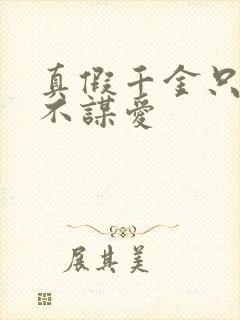 真假千金只
不謀愛
展其美